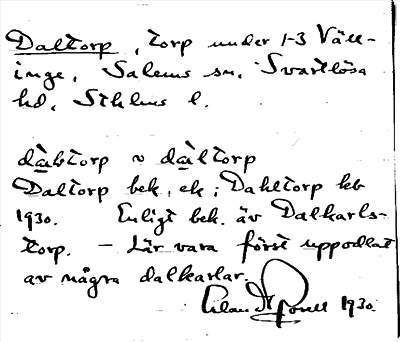 Daltorp, torp under 1-3 Väll-
inge, Salems sn, Svartlösa
hd, Sthlms l.
dàltorp ~ dàltorp
Daltorp bek, ek; Dahltorp kb
1930. Enligt bek. äv Dalkarls-
torp. – Lär vara först uppodlat
av några dalkarlar.
1930.